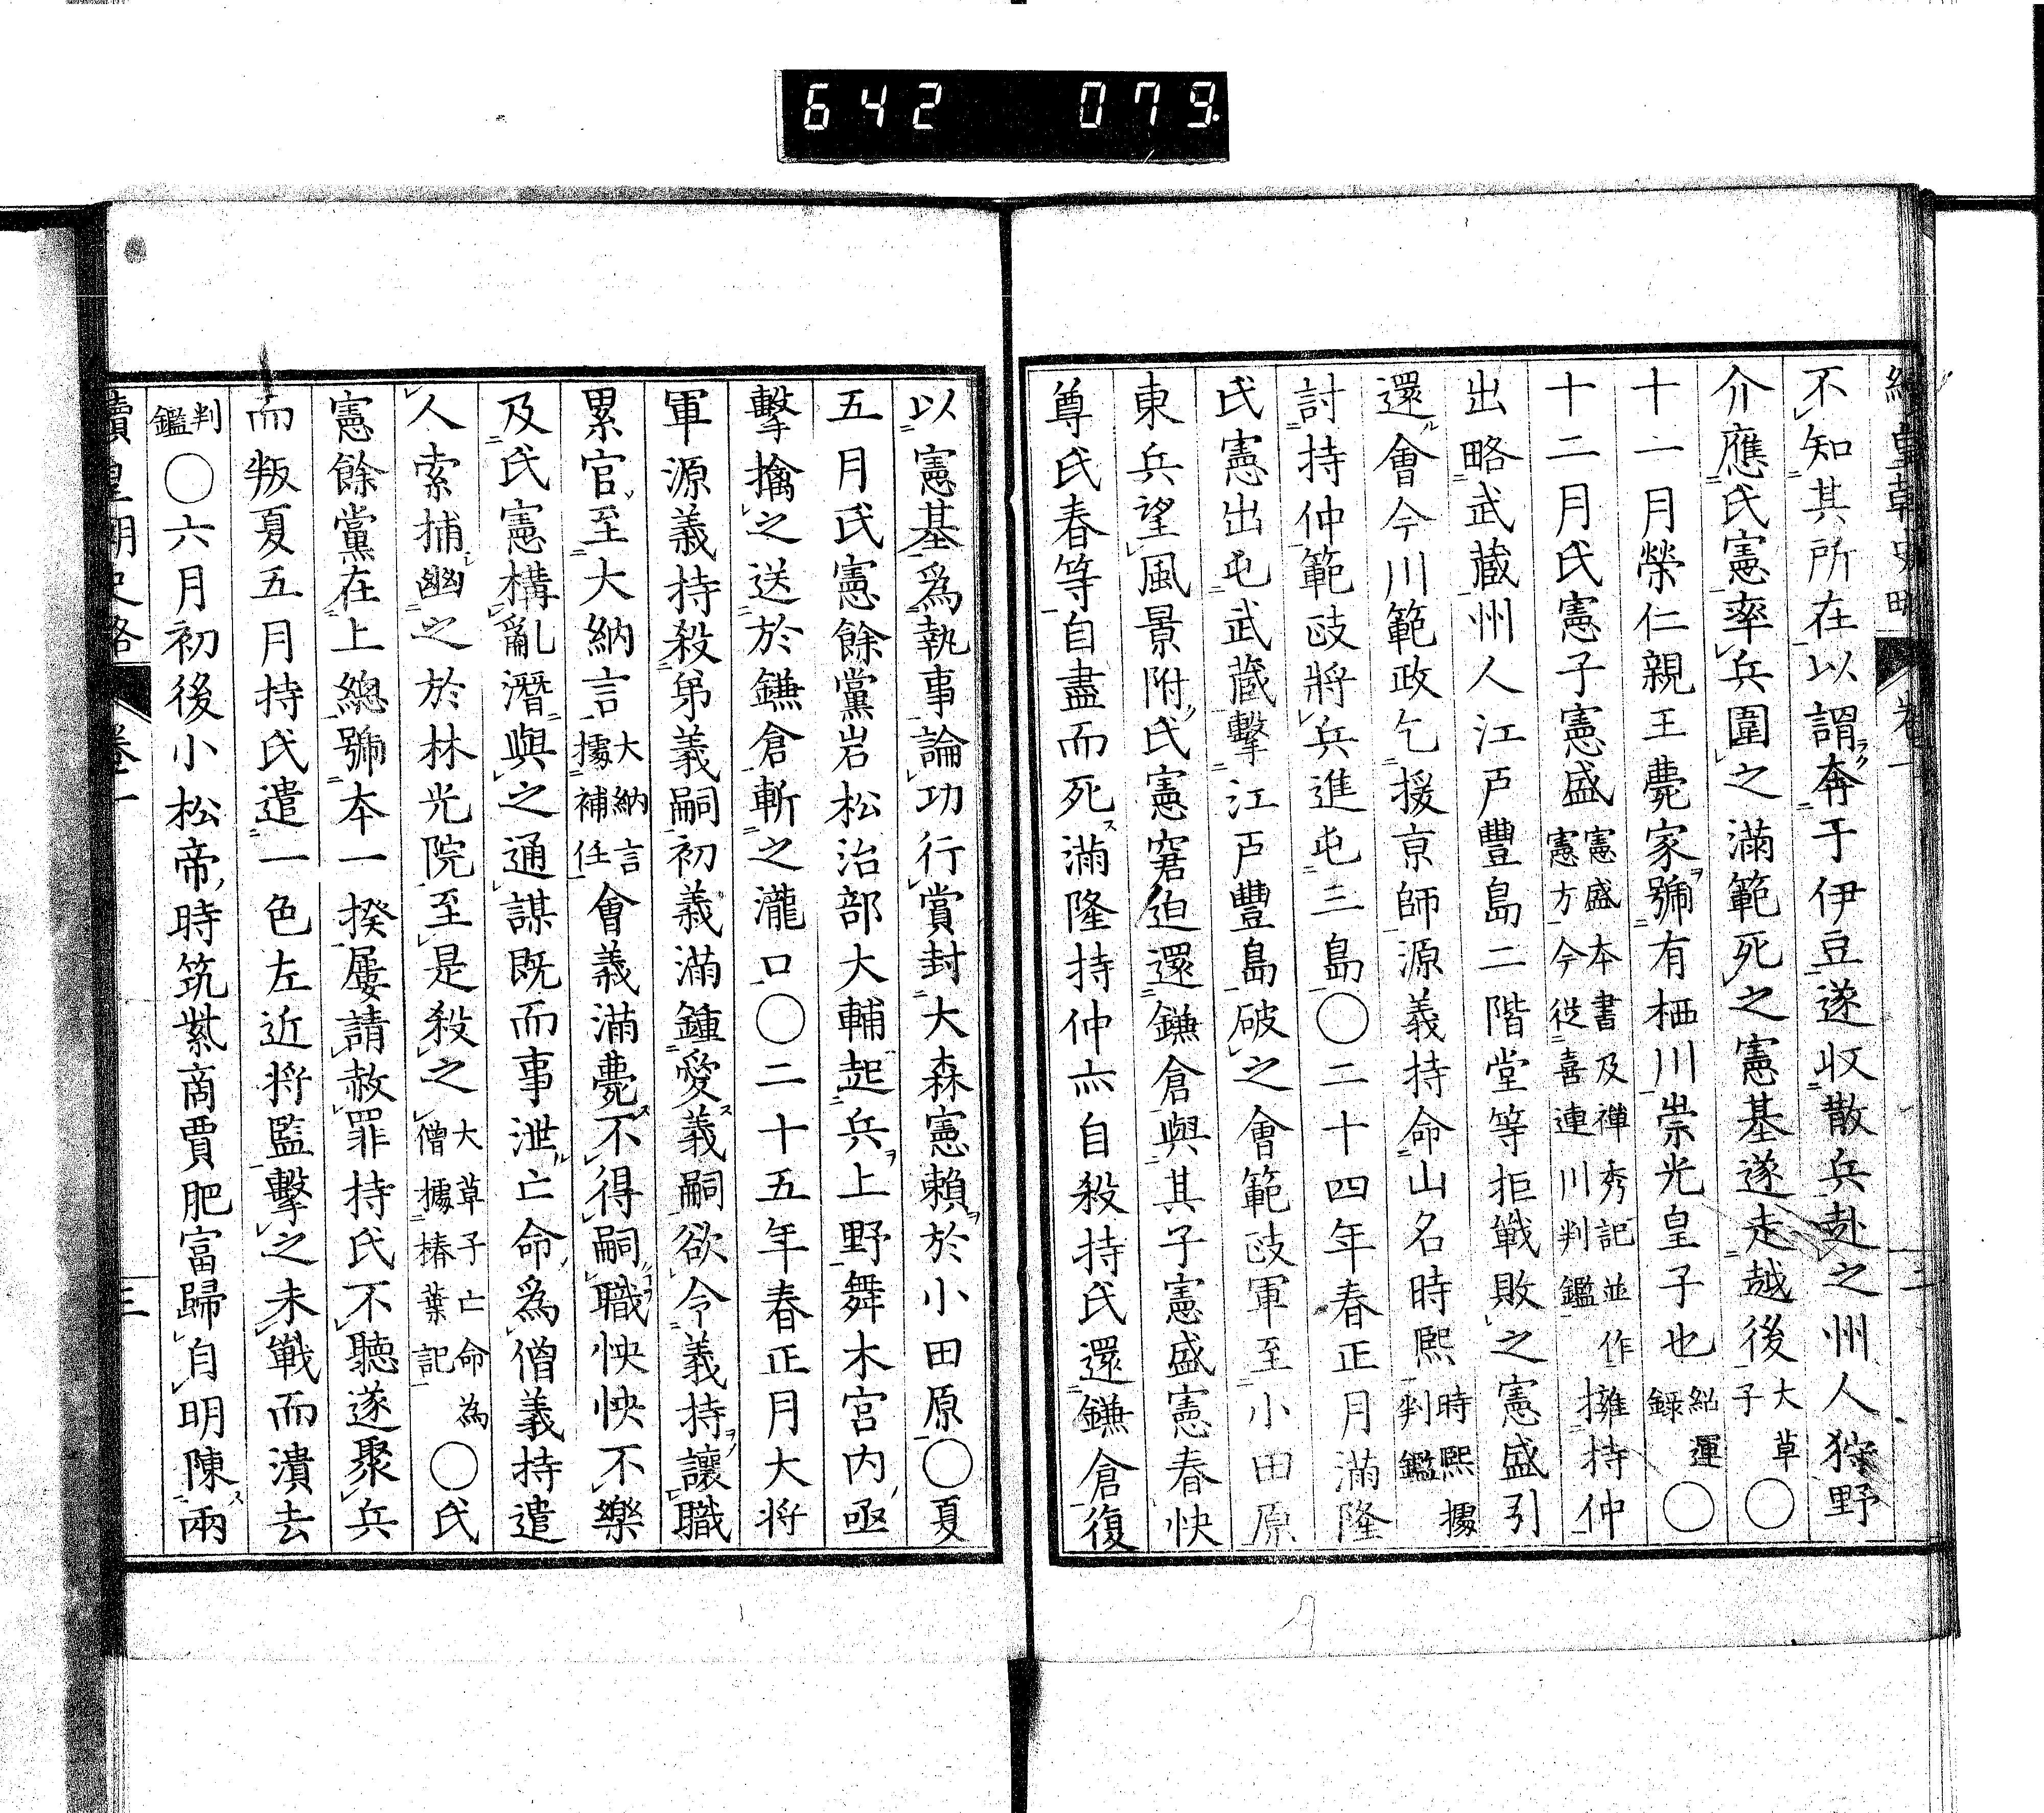 642 079
續皇朝史略 卷一 二
不知其所在以謂奔于伊豆遂收散兵赴之州人狩野
介應氏憲率兵圍之滿範死之憲基遂走越後大草子〇
十一月榮仁親王薨家號有栖川崇光皇子也紹運錄〇
十二月氏憲子憲盛憲盛本書及禪秀記並作憲方今從喜連川判鑑擁持仲
出略武藏州人江戶豐島二階堂等拒戰敗之憲盛引
還會今川範政乞援京師源義持命山名時熙時熙據判鑑
討持仲範政將兵進屯三島〇二十四年春正月滿隆
氏憲出屯武藏擊江戶豐島破之會範政軍至小田原
東兵望風景附氏憲窘迫還鎌倉與其子憲盛憲春快
尊氏春等自盡而死滿隆持仲亦自殺持氏還鎌倉復
以憲基爲執事論功行賞封大森憲賴於小田原〇夏
五月氏憲餘黨岩松治部大輔起兵上野舞木宮内亟
擊擒之送於鎌倉斬之瀧口〇二十五年春正月大將
軍源義持殺弟義嗣初義滿鍾愛義嗣欲令義持讓職
累官至大納言大納言據補任會義滿薨不得嗣職怏怏不樂
及氏憲構亂潛與之通謀既而事泄亡命爲僧義持遣
人索捕幽之於林光院至是殺之大草子亡命為僧據椿葉記〇氏
憲餘黨在上總號本一揆屢請赦罪持氏不聽遂聚兵
而叛夏五月持氏遣一色左近將監擊之未戰而潰去
判鑑〇六月初後小松帝時筑紫商賈肥富歸自明陳兩
續皇朝史略 卷一 三